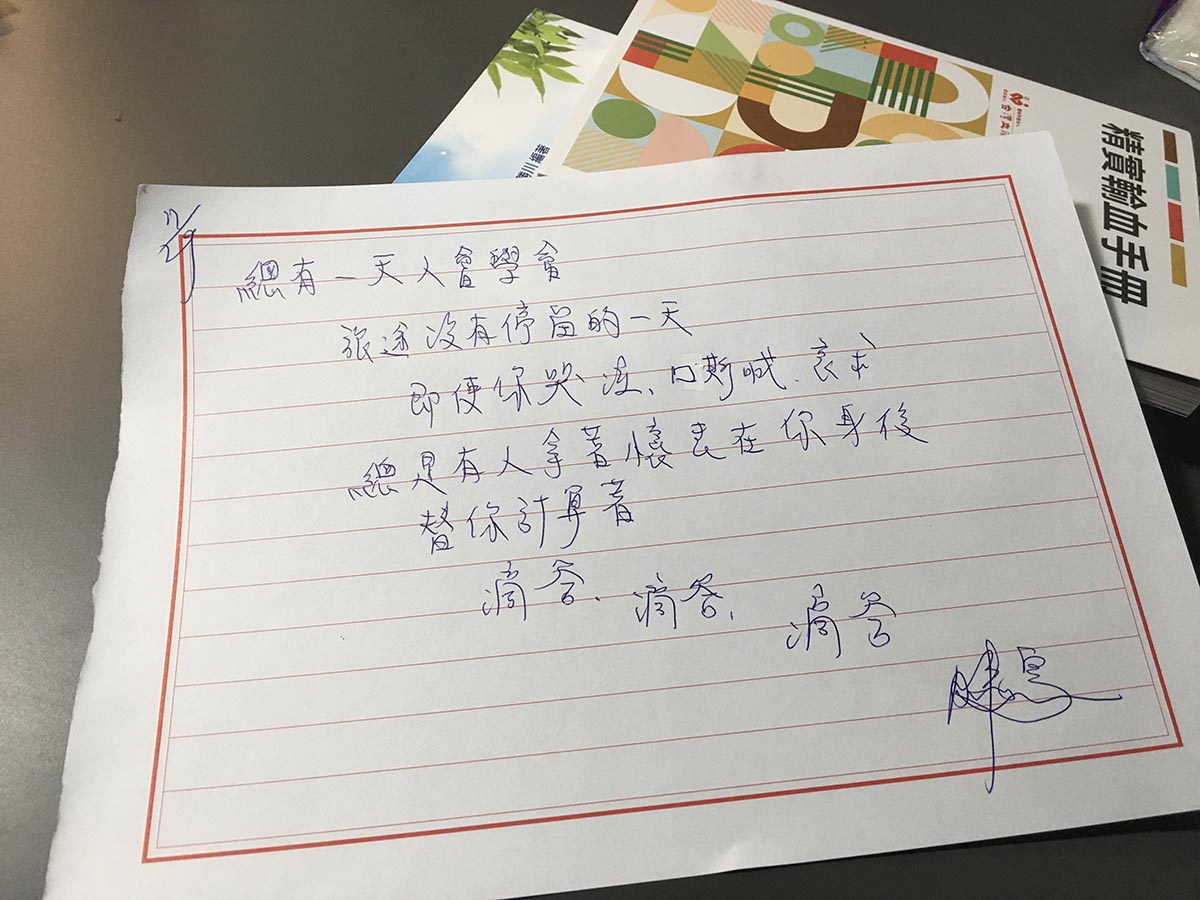 11/29
總有一天人會學會
旅途沒有停留的一天
即使你哭泣、嘶喊、哀求
總是有人拿著懷表在你身後
替你計算著
滴答、滴答、滴答
精實輸血手冊